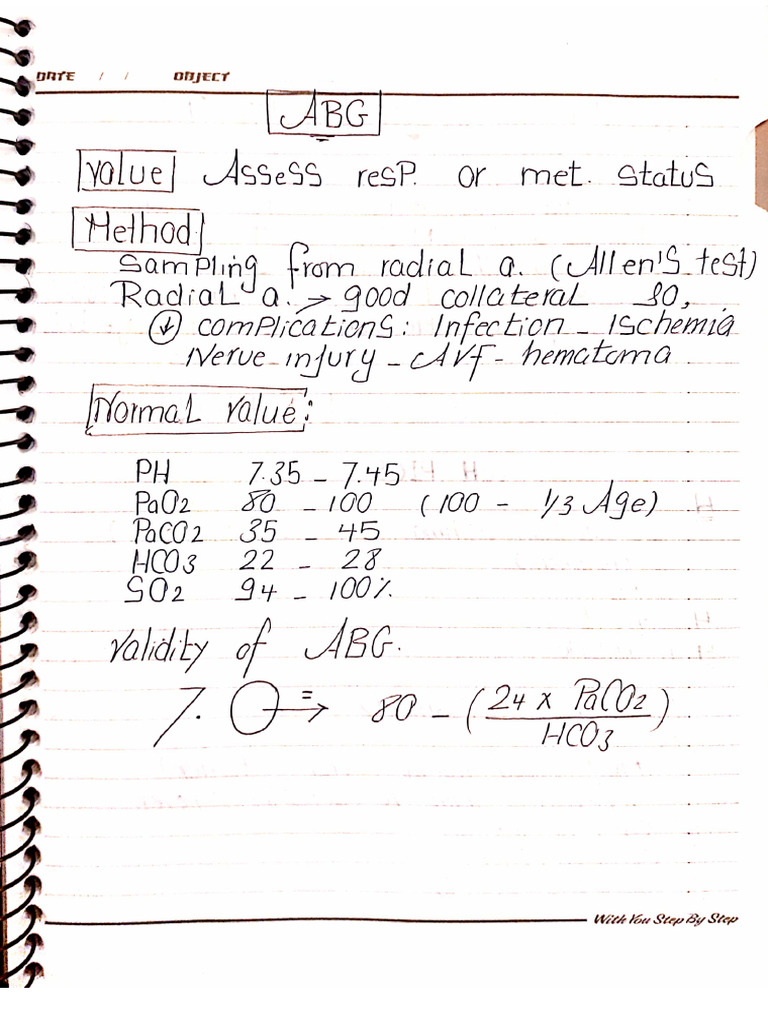 DATE / / OBJECT
ABG
Value Assess resp. or met. status
Method
Sampling from radial a. (Allen's test)
Radial a. → good collateral so,
↓ complications: Infection - Ischemia
Nerve injury - AVF - hematoma
Normal value:
PH 7.35 - 7.45
PaO2 80 - 100 (100 - 1/3 Age)
PaCO2 35 - 45
HCO3 22 - 28
SO2 94 - 100%
validity of ABG.
7. ◯ =→ 80 - (24 x PaCO2 / HCO3)
With You Step By Step